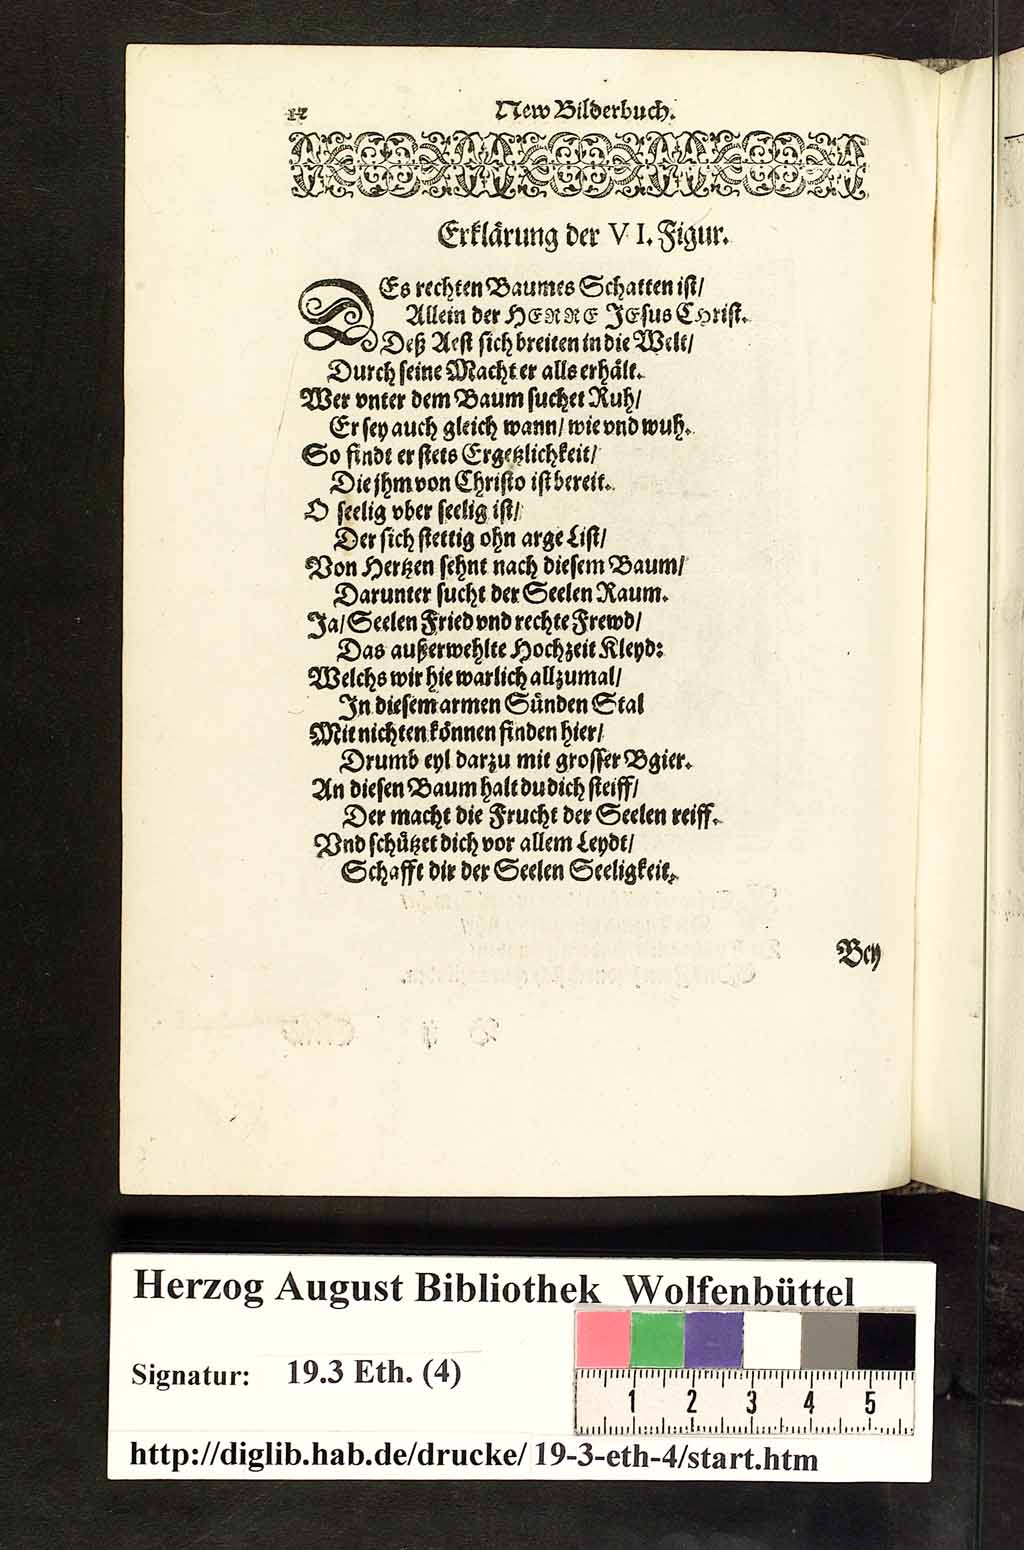 12
New Bilderbuch.
Erklärung der VI. Figur.
DEs rechten Baumes Schatten ist/
Allein der HERRE JEsus Christ.
Deß Aest sich breiten in die Welt/
Durch seine Macht er alls erhält.
Wer vnter dem Baum suchet Ruh/
Er sey auch gleich wann/ wie vnd wuh.
So findt er stets Ergetzlichkeit/
Die jhm von Christo ist bereit.
O seelig vber seelig ist/
Der sich stettig ohn arge List/
Von Hertzen sehnt nach diesem Baum/
Darunter sucht der Seelen Raum.
Ja/ Seelen Fried vnd rechte Frewd/
Das außerwehlte Hochzeit Kleyd:
Welchs wir hie warlich allzumal/
In diesem armen Sünden Stal
Mit nichten können finden hier/
Drumb eyl darzu mit grosser Bgier.
An diesen Baum halt du dich steiff/
Der macht die Frucht der Seelen reiff.
Vnd schützet dich vor allem Leydt/
Schafft dir der Seelen Seeligkeit.
Bey
Herzog August Bibliothek Wolfenbüttel
Signatur: 19.3 Eth. (4)
1 2 3 4 5
http://diglib.hab.de/drucke/ 19-3-eth-4/start.htm